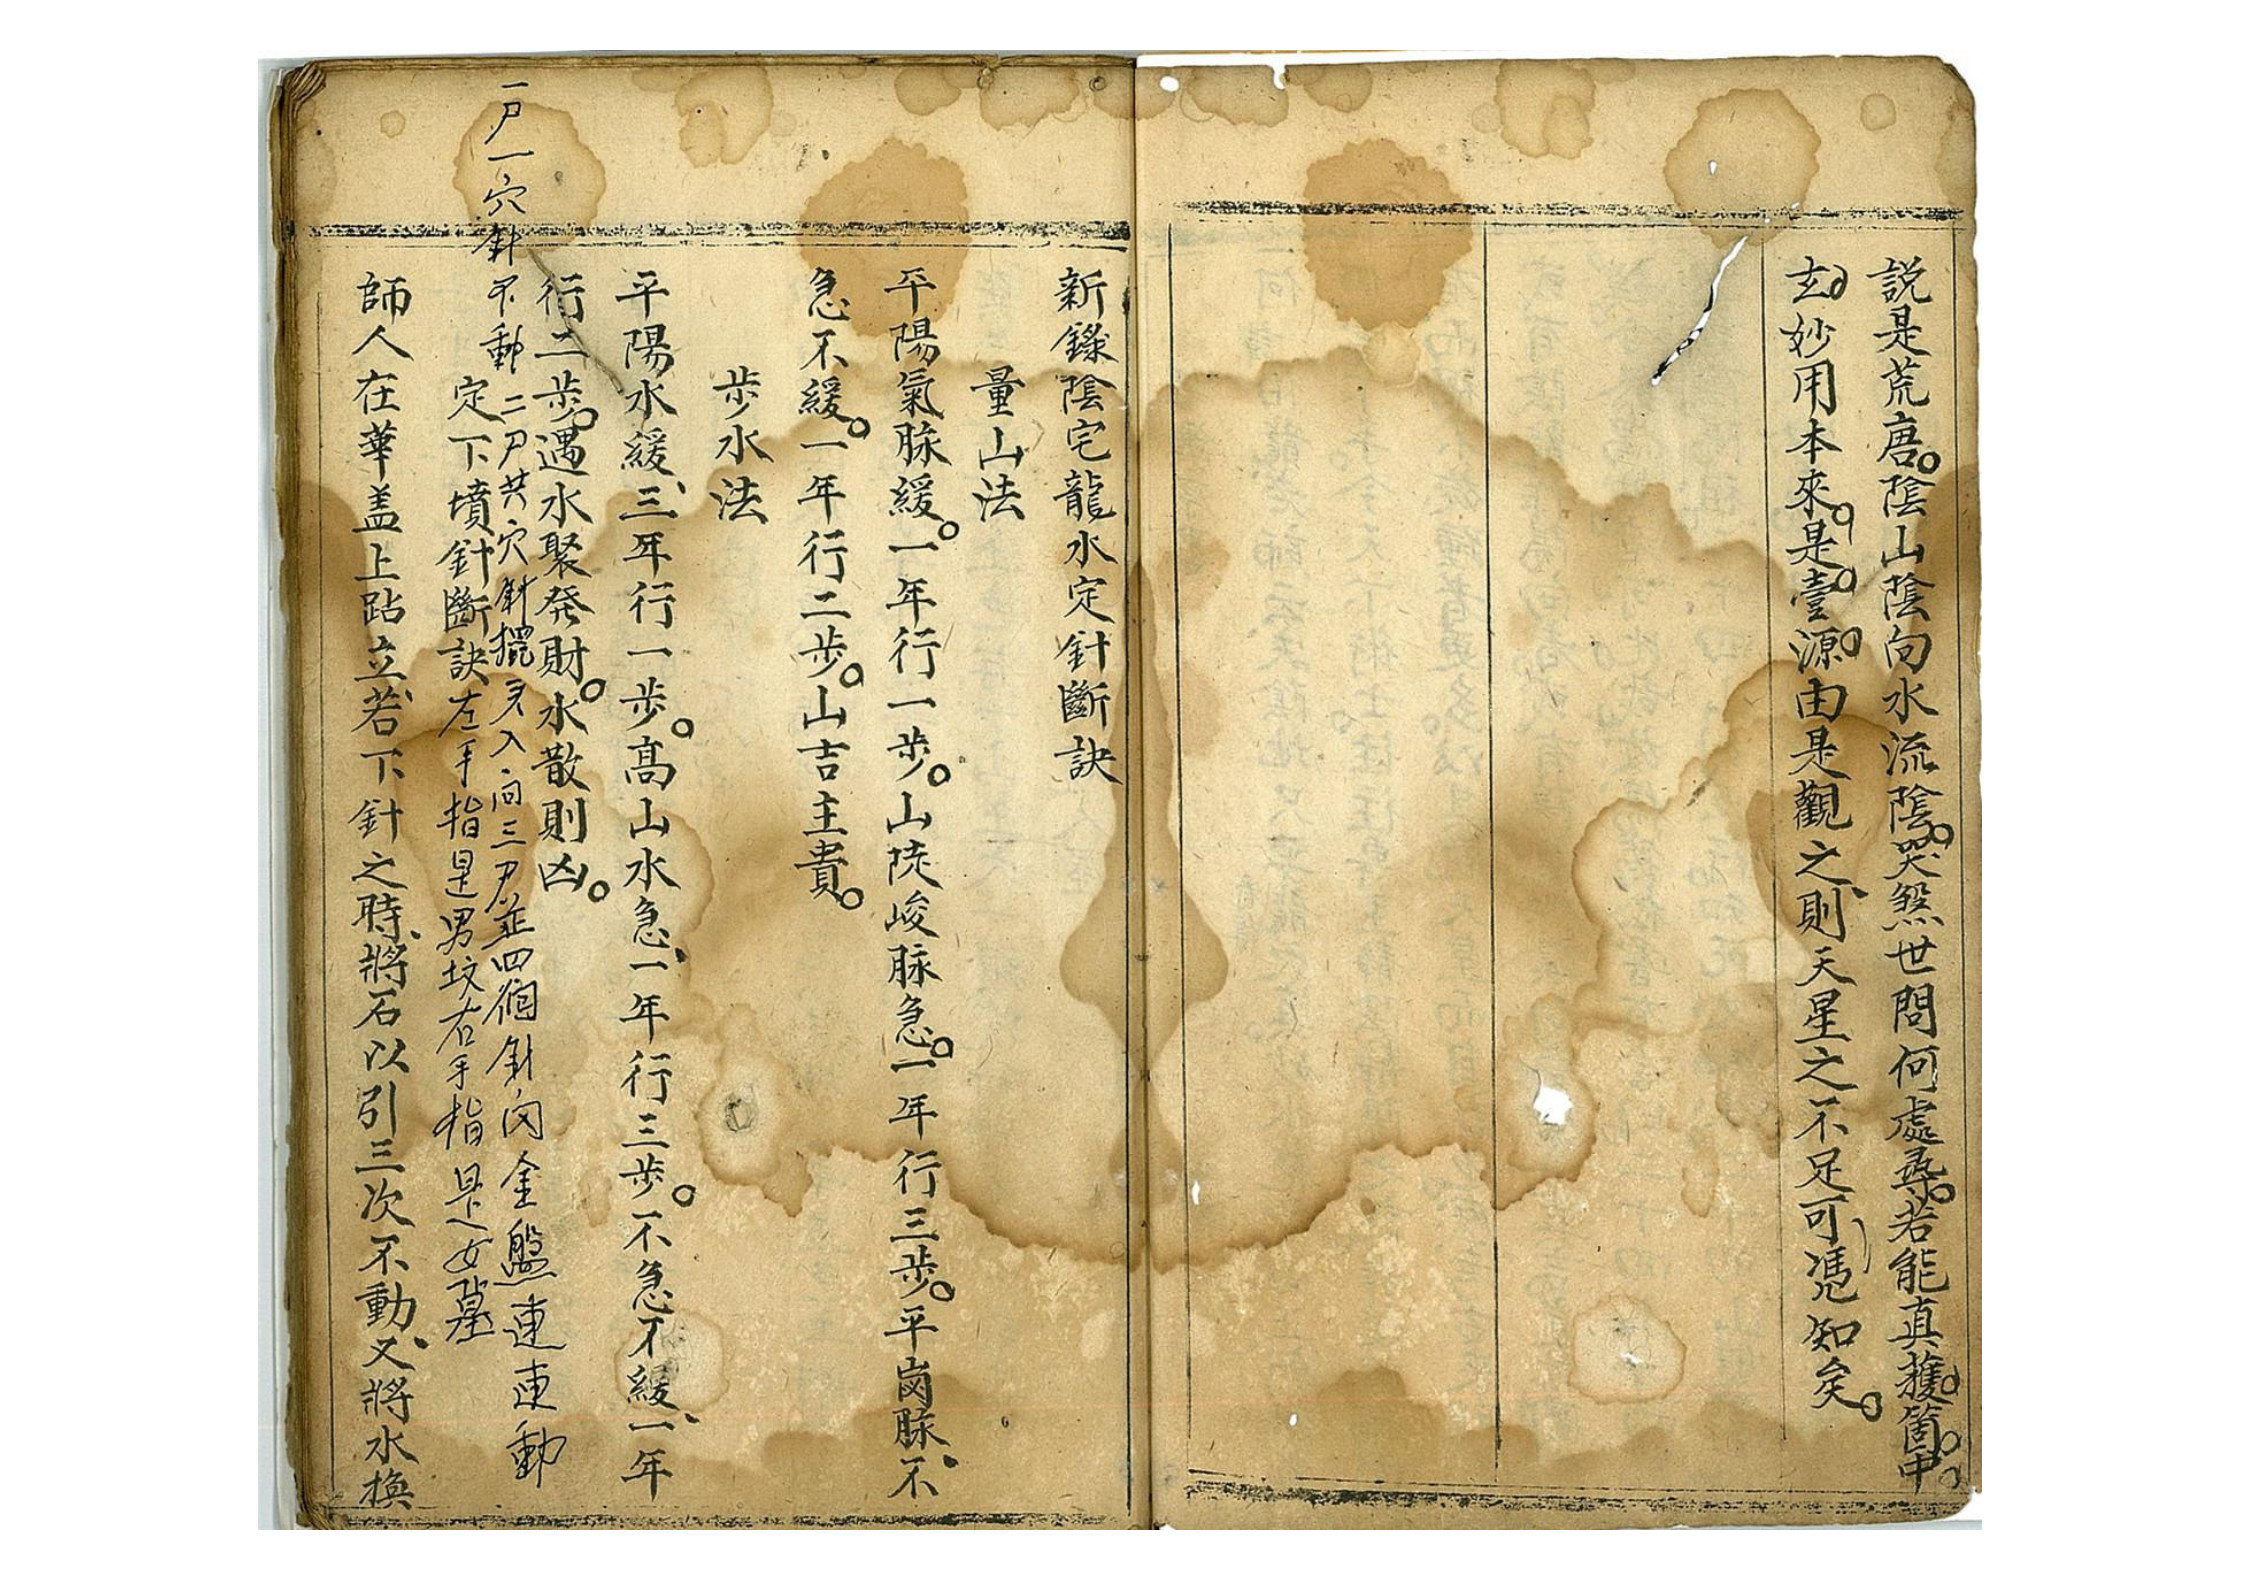 説是荒唐。陰山陰向水流陰。哭㷼世問何處尋。若能真獲。箇。中。
玄妙用本來。是。壹。源。由是觀之、則天星之不足可憑知矣。
新錄陰宅龍水定針斷訣
量山法
平陽氣脉緩。一年行一步。山陡峻脉急。一年行三步。平崗脉、不
急不緩。一年行二步。山吉主貴。
步水法
平陽水緩、三年行一步。高山水急、一年行三步。不急不緩、一年
行二步。遇水聚発財。水散則凶。
一尸一穴針不動二尸共穴針擺入向三尸並四個針內金盤連連動
定下墳針斷訣左手指是男坟右手指是女墓
師人在華盖上跕立、若下針之時、將石以引三次不動、又將水換